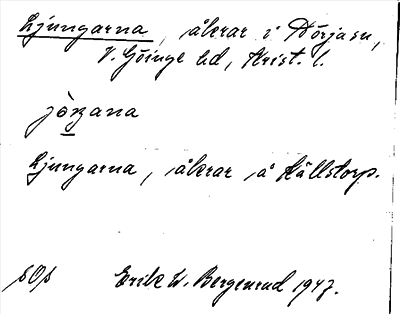 Ljungarna, åkrar i Nörjasu,
V. Göinge hd, Krist. l.
jöŋana
Ljungarna, åkrar å Hällstorp.
sOs Erik W. Bergenrud 1947.